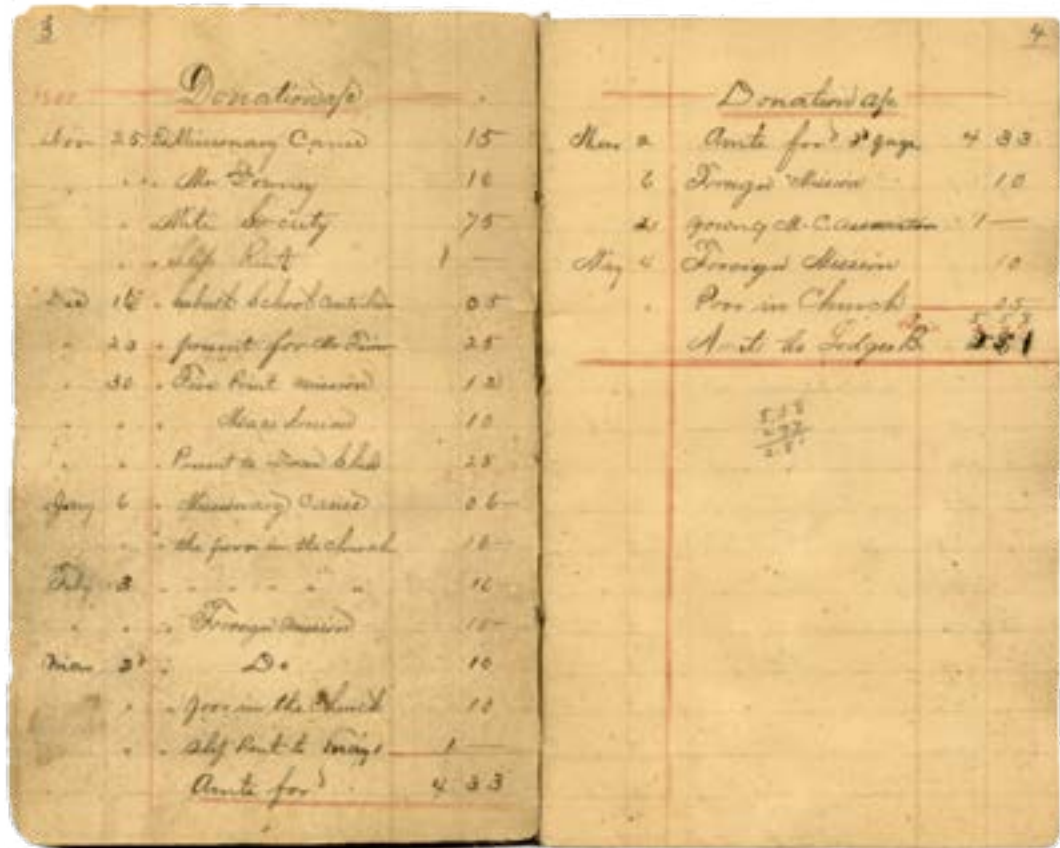 3
Donation a/c
Nov 25 Missionary Cause 15
" " " Mr Downey 10
" Mite Society 75
" " Slip Rent 1 —
Dec 16 " School 05
" 23 " present for 25
" 30 " Five Point mission 12
" " " 10
" " " Present 25
Jany 6 " Missionary Cause 06
" " " the poor in the church 10
Feby 3 " " " " " " 10
" " " Foreign mission 10
Mar 2 " Do 10
" " poor in the Church 10
" " Slip Rent to May 1 —
Amte for'd 4 33
4
Donation a/c
Mar 2 Amte for'd 3d page 4 33
6 Foreign Mission 10
2 young M. C. Association 1 —
May 4 Foreign Mission 10
" Poor in Church 05
Amte to Ledger B